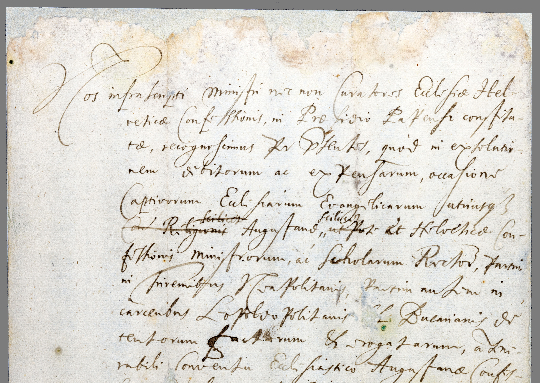 Nos infrascripti Ministri nec non Curatores Ecclesiæ Hel-
veticæ Confessionis, in Præsidio Papensi constitu-
tæ, recognoscimus Per Præsentes, quod in exsolutio-
nem debitorum ac expensarum, occasione
Captivorum Ecclesiarum Evangelicarum utriusq
Religionis scilicet Augustanæ, ut et Helveticæ Con-
fessionis Ministrorum, ac Scholarum Rectorum, partim
in Triremibus Neapolitanis, Partim autem in
carceribus Leopoldopolitanis & Bucarianis de
tentorum factarum & erogatarum, a
rabili Conventu Ecclesiastico Augustanæ Confes-